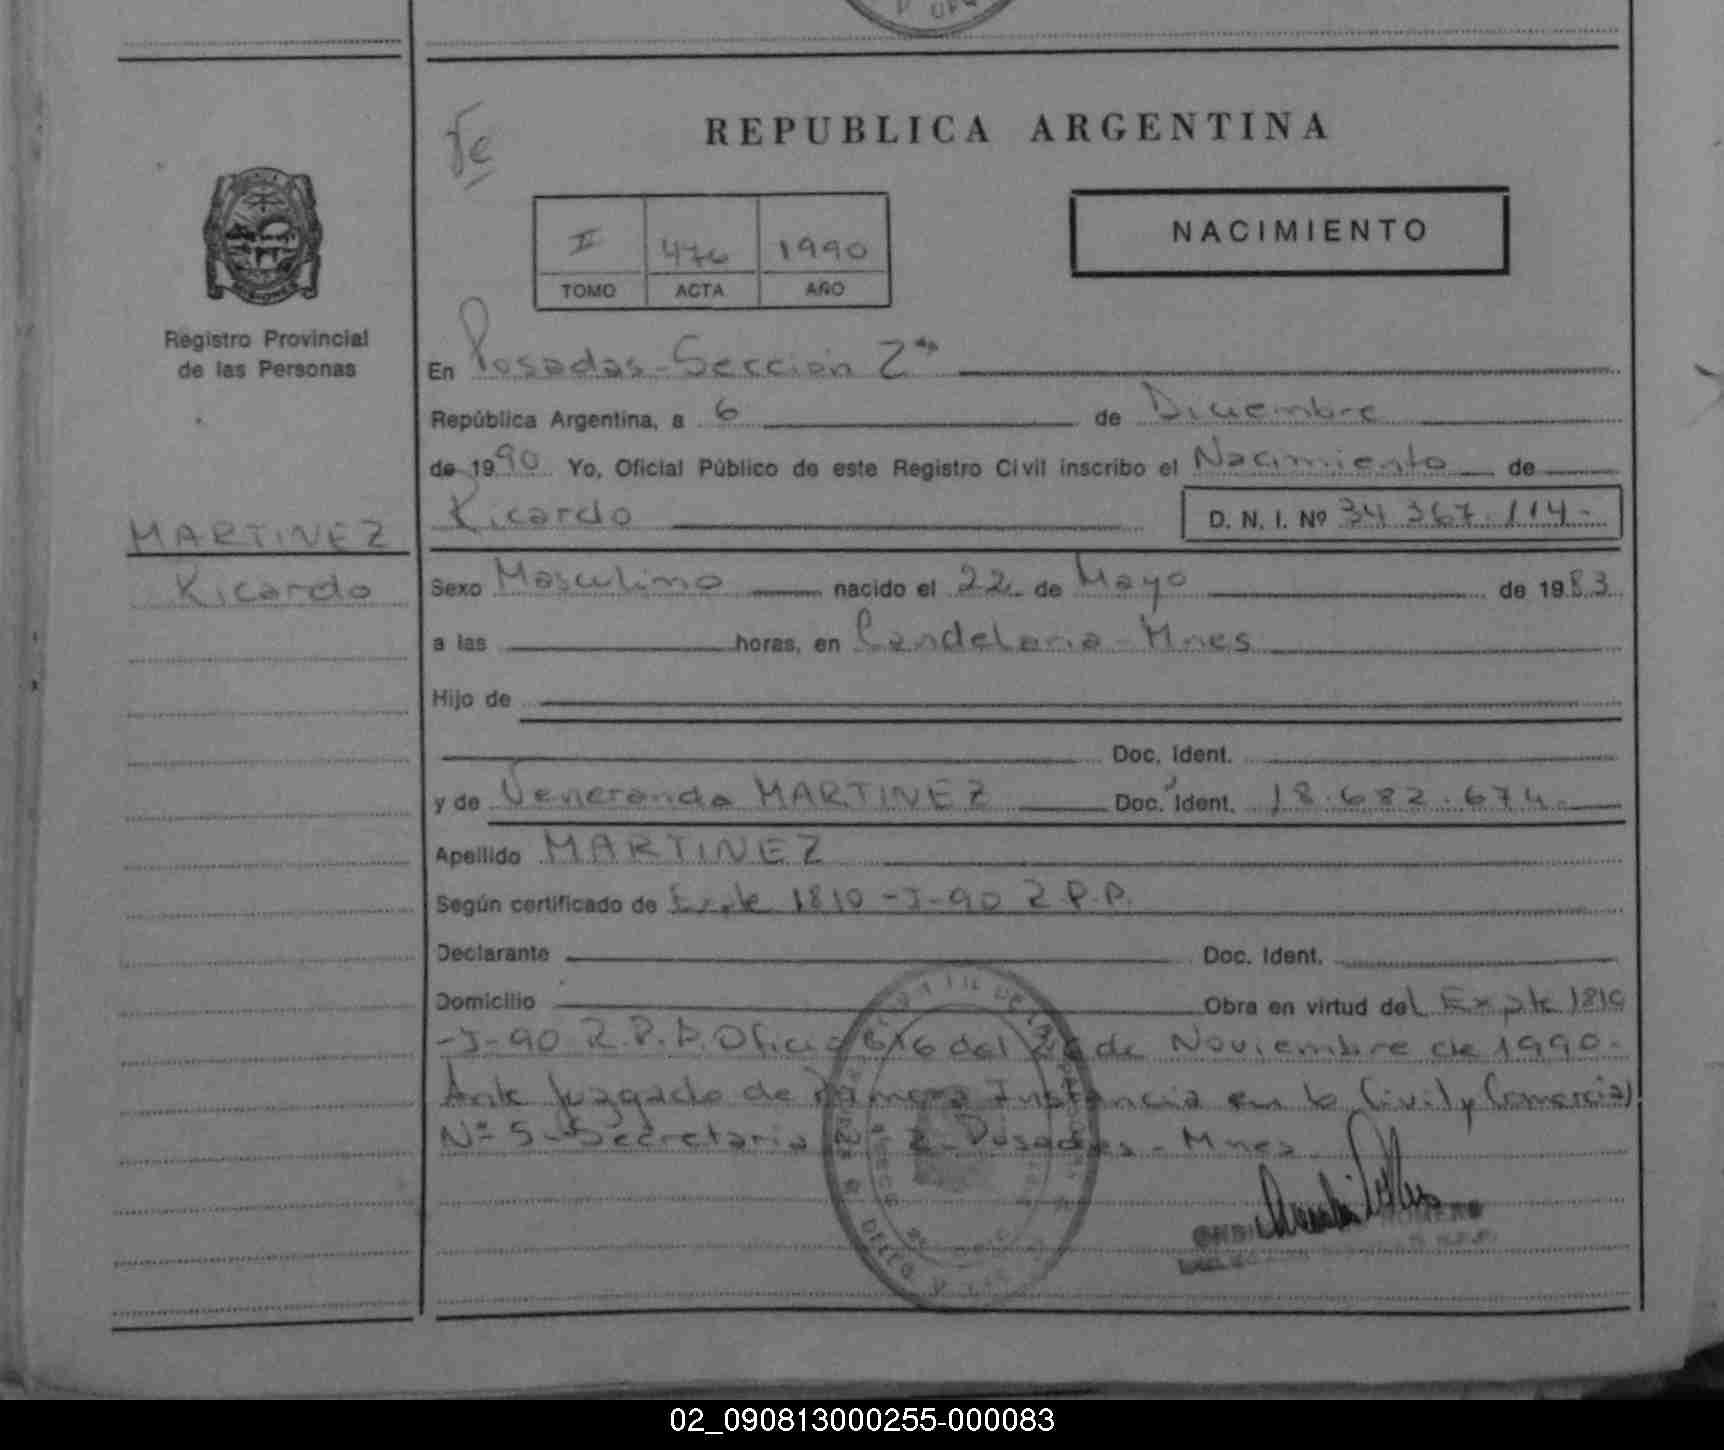 REPUBLICA ARGENTINA
NACIMIENTO
II 476 1990
TOMO ACTA AÑO
MISIONES
Registro Provincial
de las Personas
En Posadas - Sección 2da
República Argentina, a 6 de Diciembre
de 1990 Yo, Oficial Público de este Registro Civil inscribo el Nacimiento de
Ricardo D. N. I. Nº 34.367.114.-
MARTINEZ
Ricardo
Sexo Masculino nacido el 22 de Mayo de 1983
a las horas, en Candelaria - Mnes
Hijo de
Doc. Ident.
y de Veneranda MARTINEZ Doc. Ident. 18.682.674.-
Apellido MARTINEZ
Según certificado de Expte 1810 - J - 90 R.P.P.
Declarante Doc. Ident.
Domicilio Obra en virtud del Expte 1810
- J - 90 R.P.P. Oficio 616 del 26 de Noviembre de 1990.-
Ante Juzgado de Primera Instancia en lo Civil y Comercial
Nº 5 - Secretaria 2 - Posadas - Mnes
ROMERO
02_090813000255-000083